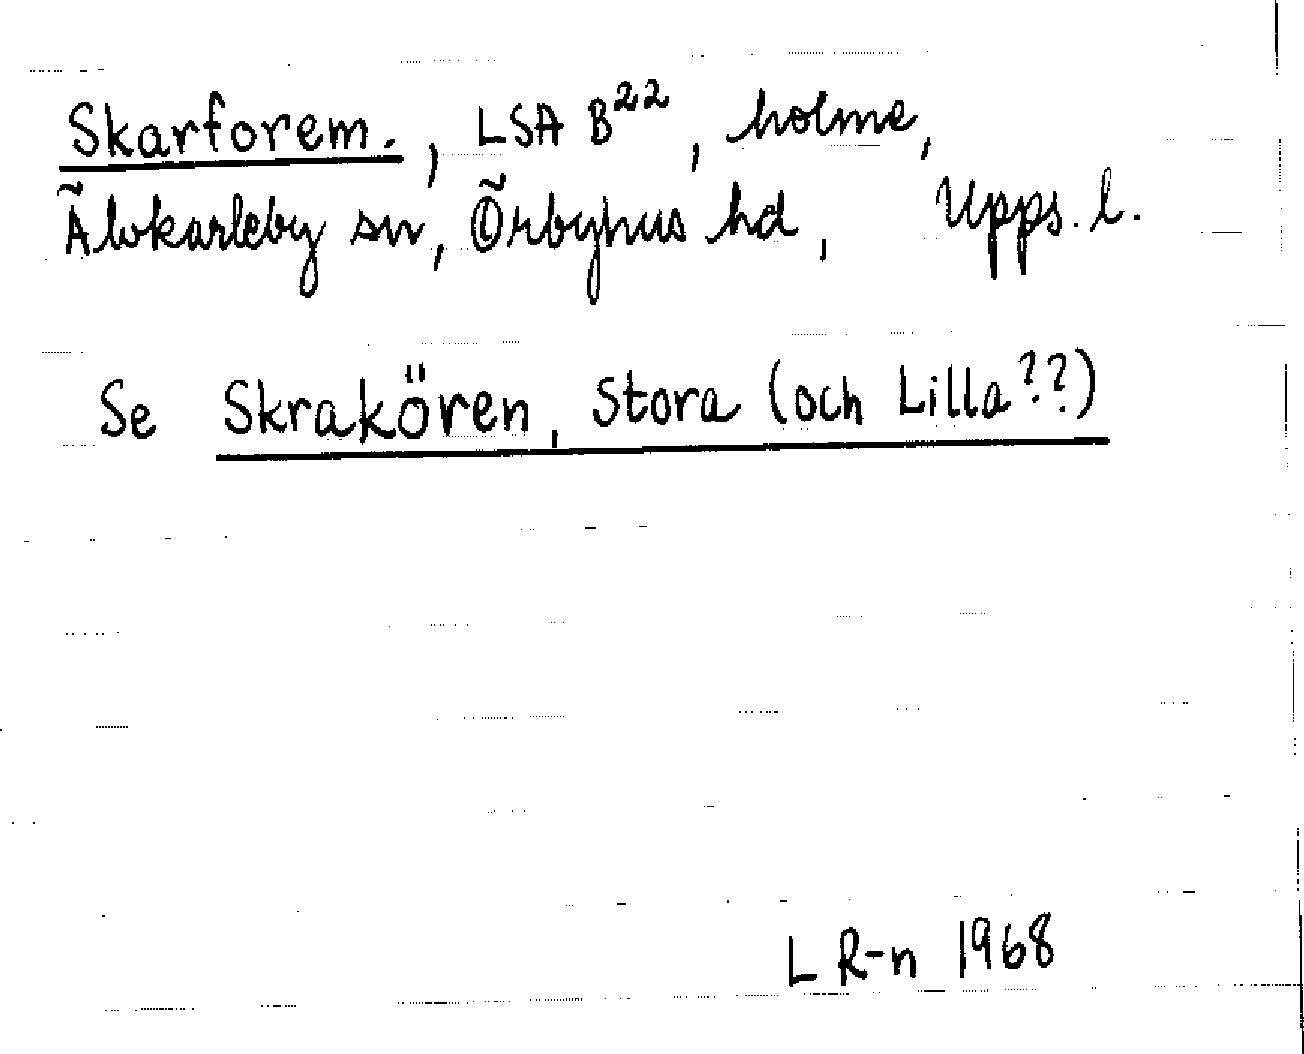 Skarforem., LSA B²², holme,
Älvkarleby sn, Örbyhus hd, Upps. l.
Se Skrakören, Stora (och Lilla??)
L R-n 1968